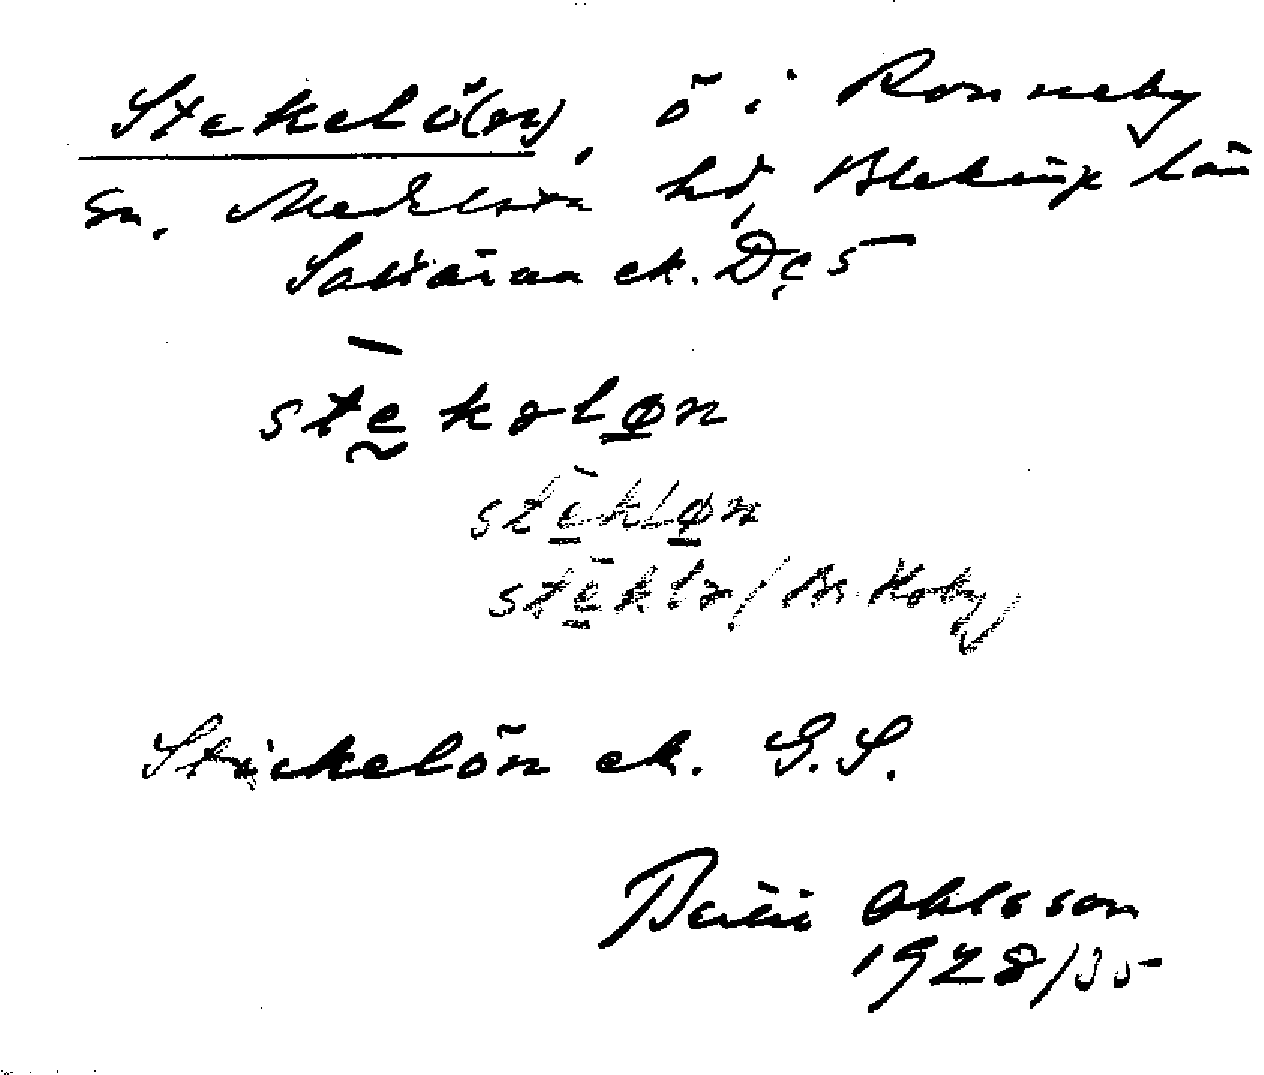 Stekelö(n), ö i Ronneby
sn. Medelsta hd, Blekinge län
Saltärna ek. Dc5
stekəløn
stekløn
steklə/Br. Koby
Stickelön ek. G.S.
Ohlsson
1928/35